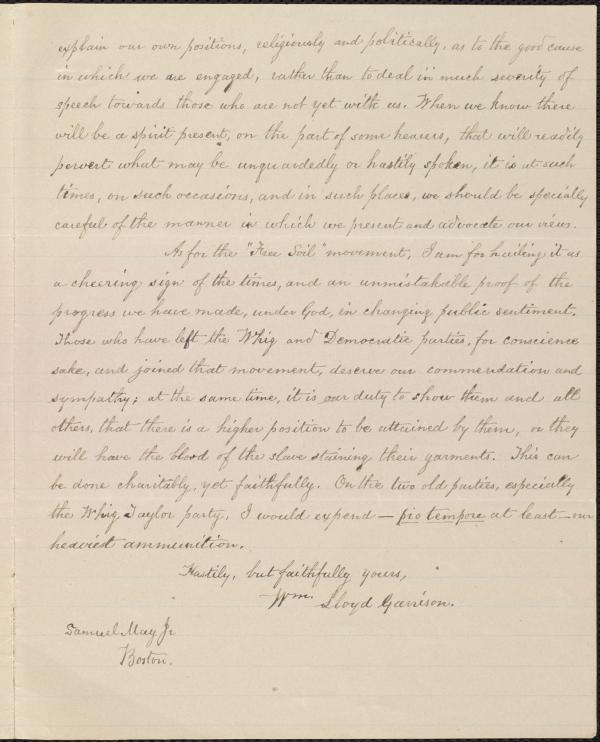 explain our own positions, religiously and politically, as to the good cause
in which we are engaged, rather than to deal in much severity of
speech towards those who are not yet with us. When we know there
will be a spirit present, on the part of some hearers, that will readily
pervert what may be unguardedly or hastily spoken, it is at such
times, on such occasions, and in such places, we should be specially
careful of the manner in which we present and advocate our views.
As for the "Free Soil" movement, I am for hailing it as
a cheering sign of the times, and an unmistakable proof of the
progress we have made, under God, in changing public sentiment.
Those who have left the Whig and Democratic parties, for conscience
sake, and joined that movement, deserve our commendation and
sympathy; at the same time, it is our duty to show them and all
others, that there is a higher position to be attained by them, or they
will have the blood of the slave staining their garments. This can
be done charitably, yet faithfully. On the two old parties, especially
the Whig Taylor party, I would expend — pro tempore at least — our
heaviest ammunition.
Hastily, but faithfully yours,
Wm. Lloyd Garrison.
Samuel May Jr
Boston.